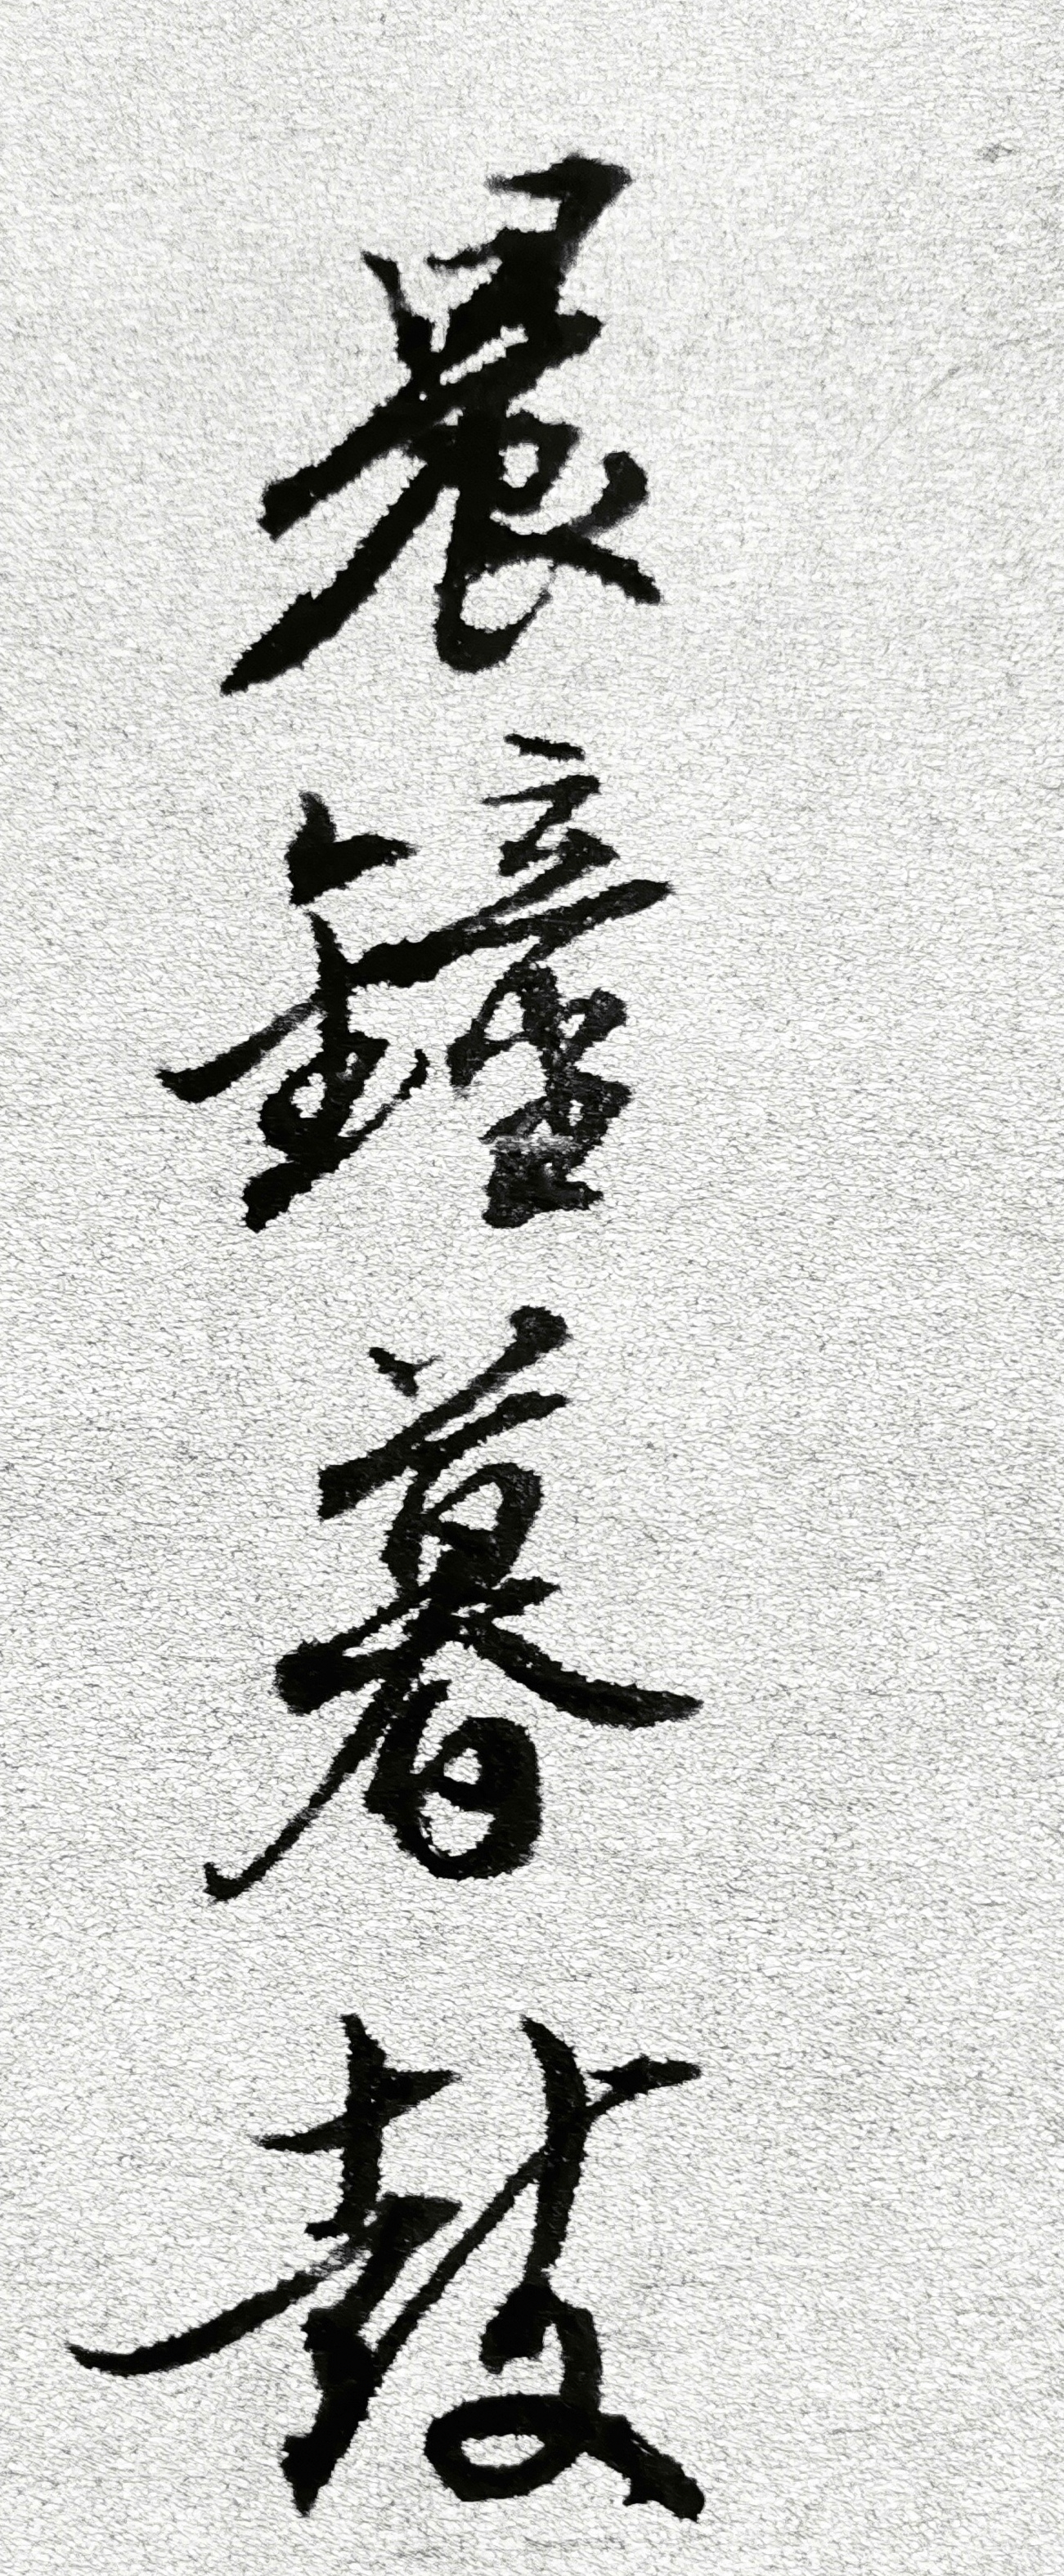 晨鐘暮鼓